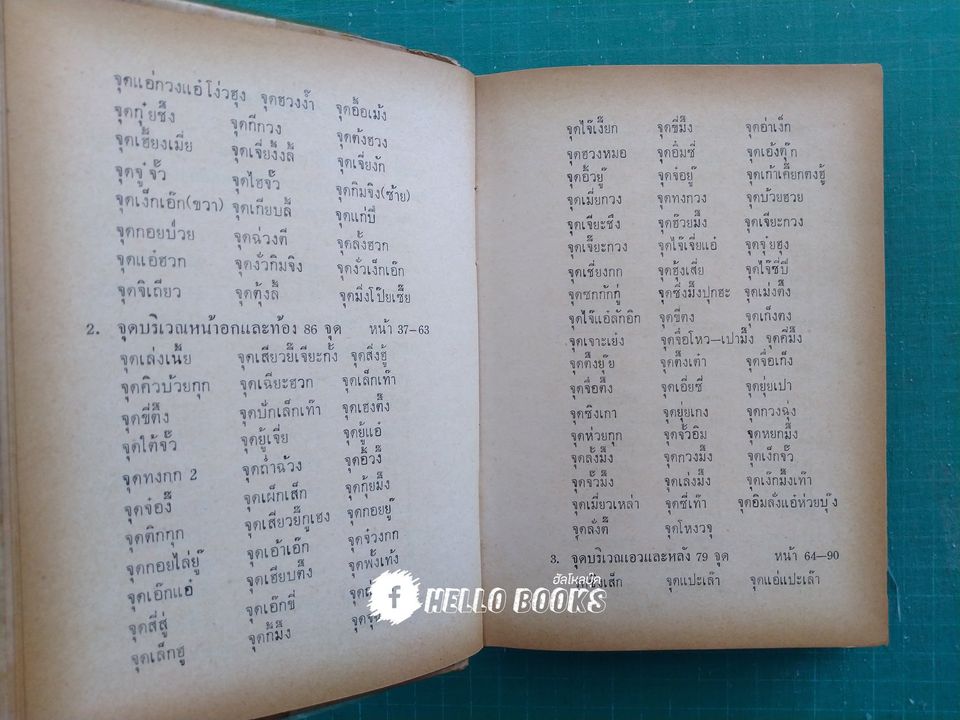 จุดแอ่กวงแอ๋โง่วฮุง จุดฮวงง้ำ จุดอื้อเม้ง
จุดกุ๋ยซึ๊ง จุดกีกวง จุดต้งฮวง
จุดเฮี๊ยงเมี่ย จุดเจี่ยงั๊งลั้ จุดเจี่ยงัก
จุดจู๋จั๊ว จุดไฮจั๊ว จุดกิมจิง(ซ้าย)
จุดเง็กเอ๊ก(ขวา) จุดเกียบลั้ จุดแก่ปี
จุดกอยป๋วย จุดฉ่วงตี จุดลั้งฮวก
จุดแอ๋ฮวก จุดงั่วกิมจิง จุดงั่วเง็กเอ๊ก
จุดจิเถียว จุดตุ้งลั้ จุดมึ่งโป๊ยเซี๊ย
2. จุดบริเวณหน้าอกและท้อง 86 จุด หน้า 37–63
จุดเล่งเนี้ย จุดเสียวยี๊เจี๊ยะกั้ง จุดสี่งฮู้
จุดคิวบ้วยกุก จุดเฉี่ยะฮวก จุดเล็กเท๊า
จุดขี่ตึ๊ง จุดบักเล็กเท๊า จุดเฮงตึ๊ง
จุดใต้จั๊ว จุดยู้เจี่ย จุดยู้แอ๋
จุดทงกก 2 จุดถ่ำฉ้วง จุดอิ้วงี้
จุดจ๋องี๊ จุดเผ็กเส็ก จุดกุ้ยมึ๊ง
จุดติกกุก จุดเสียวยี๊กูเฮง จุดกอยยู๊
จุดกอยไล่ยู๊ จุดเอ้าเอ๊ก จุดจ๋วงกก
จุดเอ๊กแอ๋ จุดเฮียบตึ๊ง จุดพั้งเท้ง
จุดสี่สู่ จุดเอ๊กขี่
จุดเล็กฮู จุดกี๊มึ๊ง
จุดไจ้เงี๊ยก จุดขี่มึ๊ง จุดอ่าเง็ก
จุดฮวงหมอ จุดอิ๋มซี่ จุดเอ้งตุ๊ก
จุดอิ้วยู๊ จุดจ๋อยู๊ จุดเก้าเคี๊ยกตงฮู้
จุดเมี่ยกวง จุดทงกวง จุดบ้วยฮวย
จุดเจี๊ยะซึง จุดฮ๊วยมึ๊ง จุดเจี๊ยะกวง
จุดเจี๊ยะกวง จุดไจ๊เจี่ยแอ๋ จุดจุ๋ยฮุง
จุดเชี่ยงกก จุดฮุ้งเสี่ย จุดไจ๊ซี่ปี
จุดซกกักกู่ จุดซึ่งมึ๊งปุกฮะ จุดเม่งตึ๊ง
จุดไจ๊แอ๋ลักอิก จุดขี่ตง จุดเก็งตง
จุดเจาะเย๋ง จุดจื่อโหว–เปามึ๊ง จุดคีมึ๊ง
จุดตึ๊งยุ๊ย จุดตึ๊งเต๋า จุดจื่อเก็ง
จุดจื่อตึ๊ง จุดเอี่ยซี่ จุดยุ่ยเปา
จุดซิงเกา จุดยุ่ยเกง จุดกวงฉุ่ง
จุดห่วยกุก จุดจั๊วอิม จุดหยกมึ๊ง
จุดลั้งมึ๊ง จุดกวงมึ๊ง จุดเง็กจั๊ว
จุดจั๊วมึ๊ง จุดเล่งมึ๊ง จุดเง๊กมึ๊งเท๊า
จุดเมี่ยวเหล่า จุดซี่เท๊า จุดอิมลั่งแอ๋ห่วยบุ๊ง
จุดลั่งตี๊ จุดโหงวจุ
3. จุดบริเวณเอวและหลัง 79 จุด หน้า 64–90
จุดแปะเล๊า จุดแอ่แปะเล๊า
ฮัลโหลบุ๊ค
f HELLO BOOKS